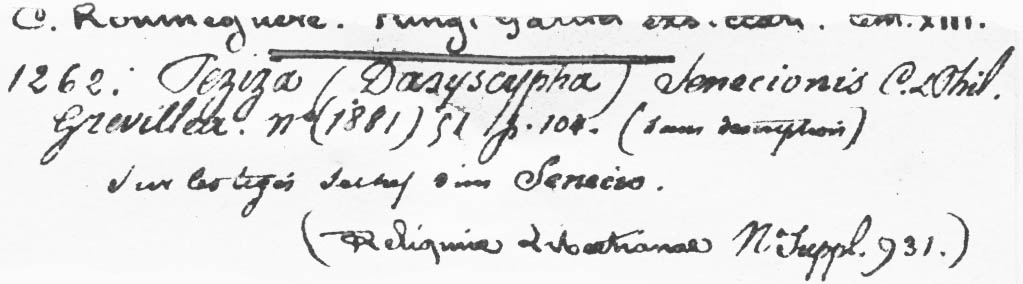 C. Roumeguère. Fungi Gallici exsiccati. Cent. XIII.
1262. Peziza (Dasyscypha) Senecionis C. & Phil.
Grevillea. nº (1881) 51 p. 104. (sans description)
Sur les tiges sèches d'un Senecio.
(Reliquiae Libertianae N.º Suppl. 931.)